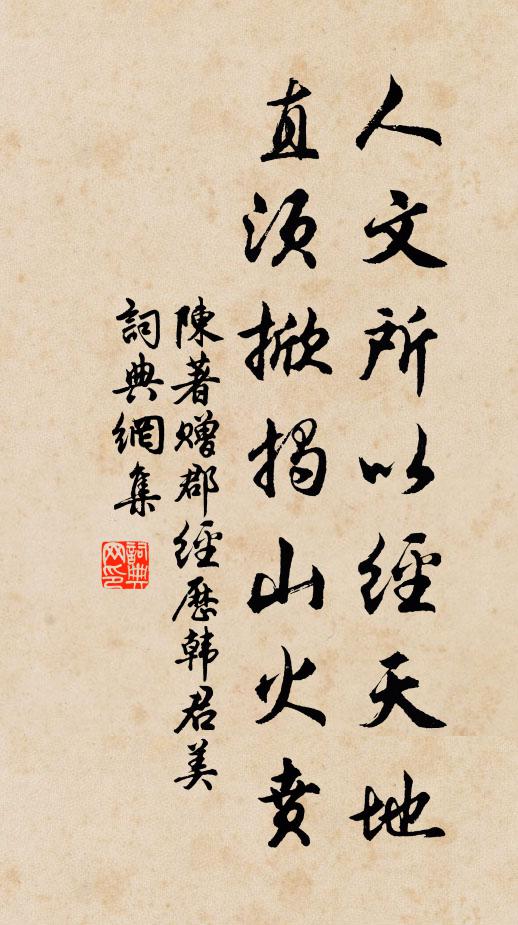 人文所以經天地
直須掀揭山火賁
陳著贈郡經歷韓君美
詞典網集
詞典网印